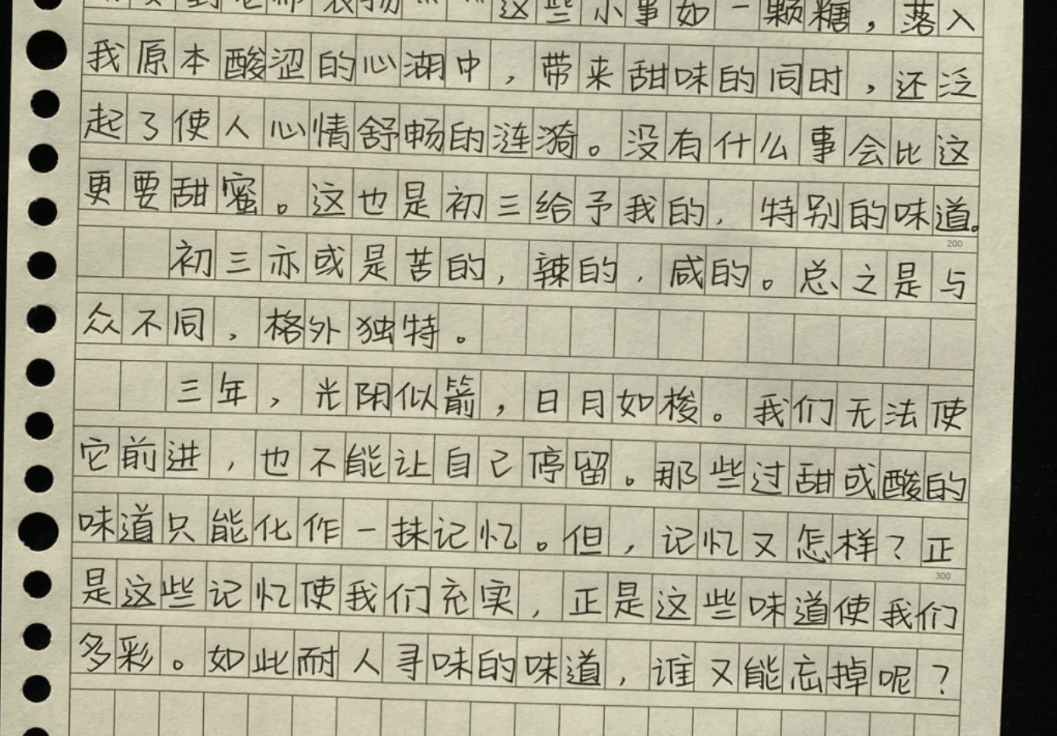 这些小事如一颗糖，落入
我原本酸涩的心湖中，带来甜味的同时，还泛
起了使人心情舒畅的涟漪。没有什么事会比这
更要甜蜜。这也是初三给予我的，特别的味道。
200
初三亦或是苦的，辣的，咸的。总之是与
众不同，格外独特。
三年，光阴似箭，日月如梭。我们无法使
它前进，也不能让自己停留。那些过甜或酸的
味道只能化作一抹记忆。但，记忆又怎样？正
300
是这些记忆使我们充实，正是这些味道使我们
多彩。如此耐人寻味的味道，谁又能忘掉呢？